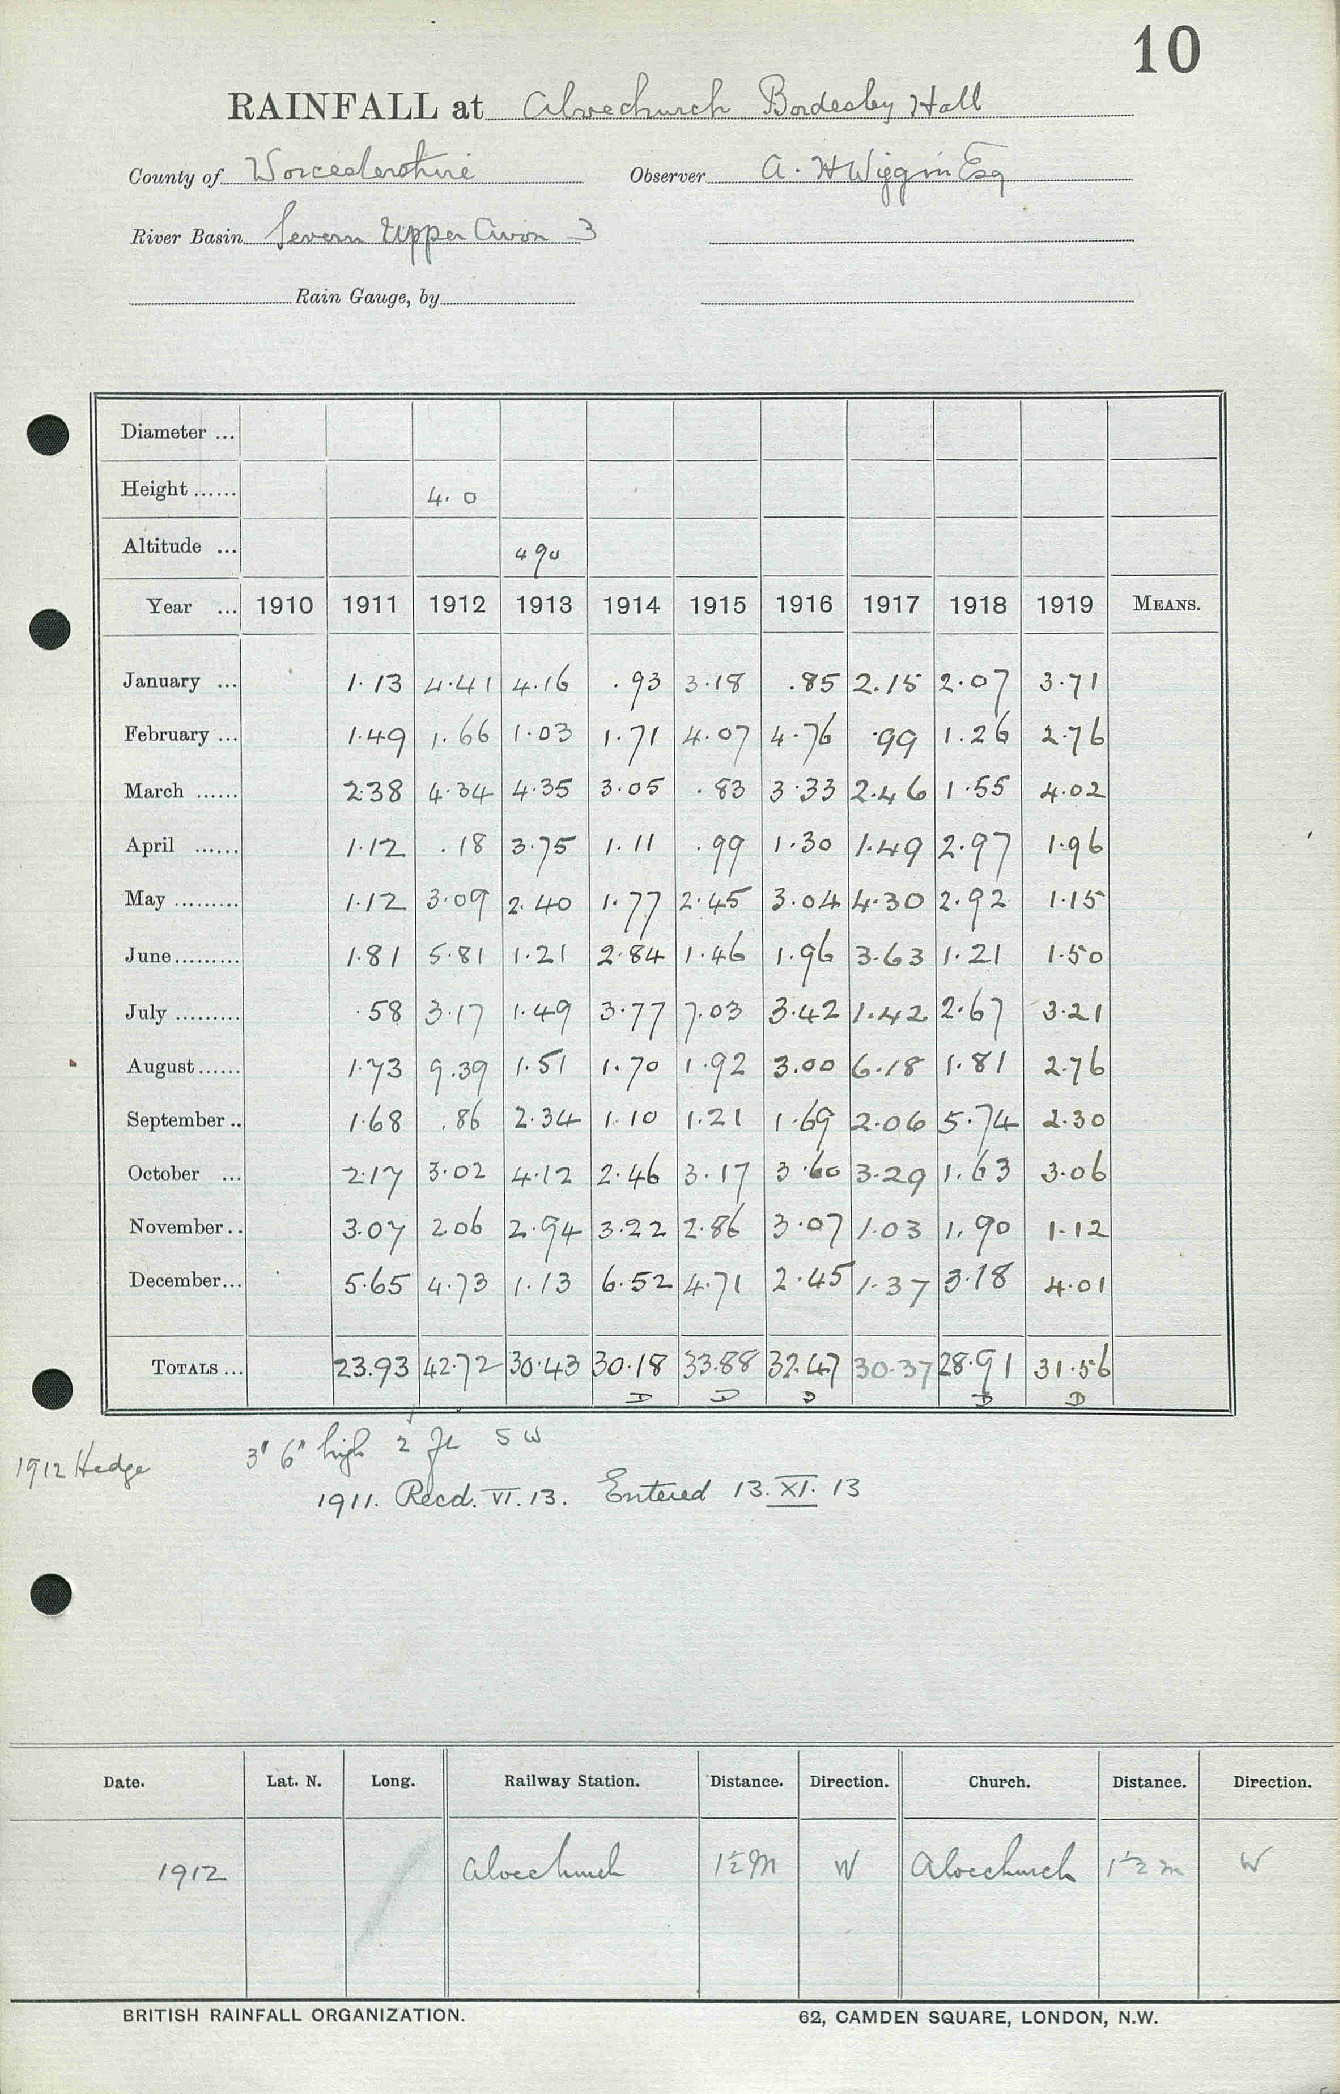 10
RAINFALL at Alvechurch Bordesley Hall
County of Worcestershire Observer A. H Wiggin Esq
River Basin Severn Upper Avon 3
Rain Gauge, by
Diameter ...
Height ...... 4.0
Altitude ... 490
Year ... 1910 1911 1912 1913 1914 1915 1916 1917 1918 1919 MEANS.
January ... 1.13 4.41 4.16 .93 3.18 .85 2.15 2.07 3.71
February ... 1.49 1.66 1.03 1.71 4.07 4.76 .99 1.26 2.76
March ...... 2.38 4.34 4.35 3.05 .83 3.33 2.46 1.55 4.02
April ...... 1.12 .18 3.75 1.11 .99 1.30 1.49 2.97 1.96
May ......... 1.12 3.09 2.40 1.77 2.45 3.04 4.30 2.92 1.15
June ......... 1.81 5.81 1.21 2.84 1.46 1.96 3.63 1.21 1.50
July ......... .58 3.17 1.49 3.77 7.03 3.42 1.42 2.67 3.21
August ...... 1.73 9.39 1.51 1.70 1.92 3.00 6.18 1.81 2.76
September .. 1.68 .86 2.34 1.10 1.21 1.69 2.06 5.74 2.30
October ... 2.17 3.02 4.12 2.46 3.17 3.60 3.29 1.63 3.06
November .. 3.07 2.06 2.94 3.22 2.86 3.07 1.03 1.90 1.12
December ... 5.65 4.73 1.13 6.52 4.71 2.45 1.37 3.18 4.01
TOTALS ... 23.93 42.72 30.43 30.18 33.88 32.47 30.37 28.91 31.56
D D D B D
1912 Hedge 3' 6" high 2 ft SW
1911. Recd. VI. 13. Entered 13. XI. 13
Date. Lat. N. Long. Railway Station. Distance. Direction. Church. Distance. Direction.
1912 Alvechurch 1½ M W Alvechurch 1½ m W
BRITISH RAINFALL ORGANIZATION. 62, CAMDEN SQUARE, LONDON, N.W.